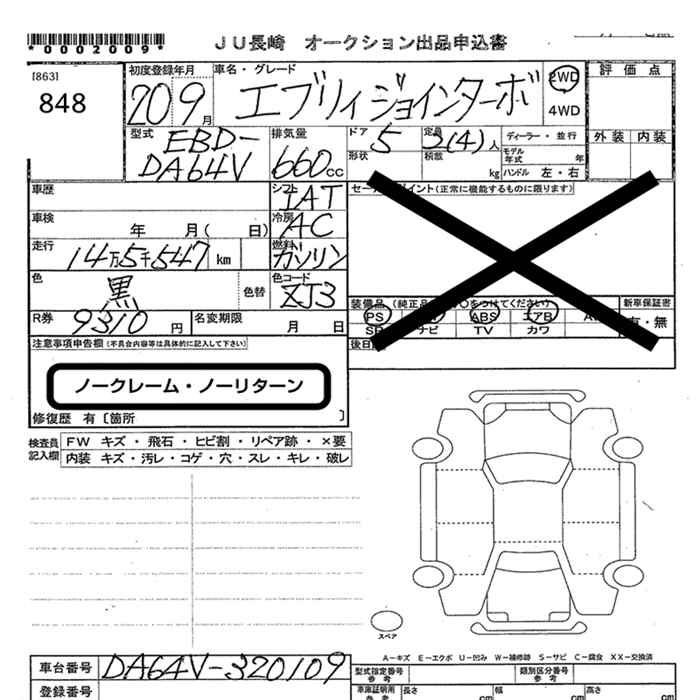 *0002009*
JU長崎 オークション出品申込書
[863]
848
初度登録年月
20 9月
車名・グレード
エブリィジョインターボ
2WD
4WD
評価点
外装 内装
型式
EBD-
DA64V
排気量
660cc
ドア
5
定員
2(4)人
形状
積載
kg
ディーラー・並行
モデル年式 年
ハンドル 左・右
車歴
シフト
IAT
セー ポイント(正常に機能するものに限ります)
車検
年 月( 日)
冷房
AC
走行
14万5千547 km
燃料
ガソリン
色
黒
色替
色コード
ZJ3
装備品 (純正品 ○をつけてください)
新車保証書
有・無
PS
ABS
エアB
ナビ
TV
カワ
R券
9310円
名変期限
月 日
後日
注意事項申告欄(不具合内容等は具体的に記入して下さい)
ノークレーム・ノーリターン
修復歴 有〔箇所 〕
検査員記入欄
FW キズ・飛石・ヒビ割・リペア跡・×要
内装 キズ・汚レ・コゲ・穴・スレ・キレ・破レ
スペア
A-キズ E-エクボ U-凹み W-補修跡 S-サビ C-腐食 XX-交換済
車台番号
DA64V-320109
型式指定番号
参考
類別区分番号
参考
登録番号
車庫証明用
参考
長さ cm
幅 cm
高さ cm